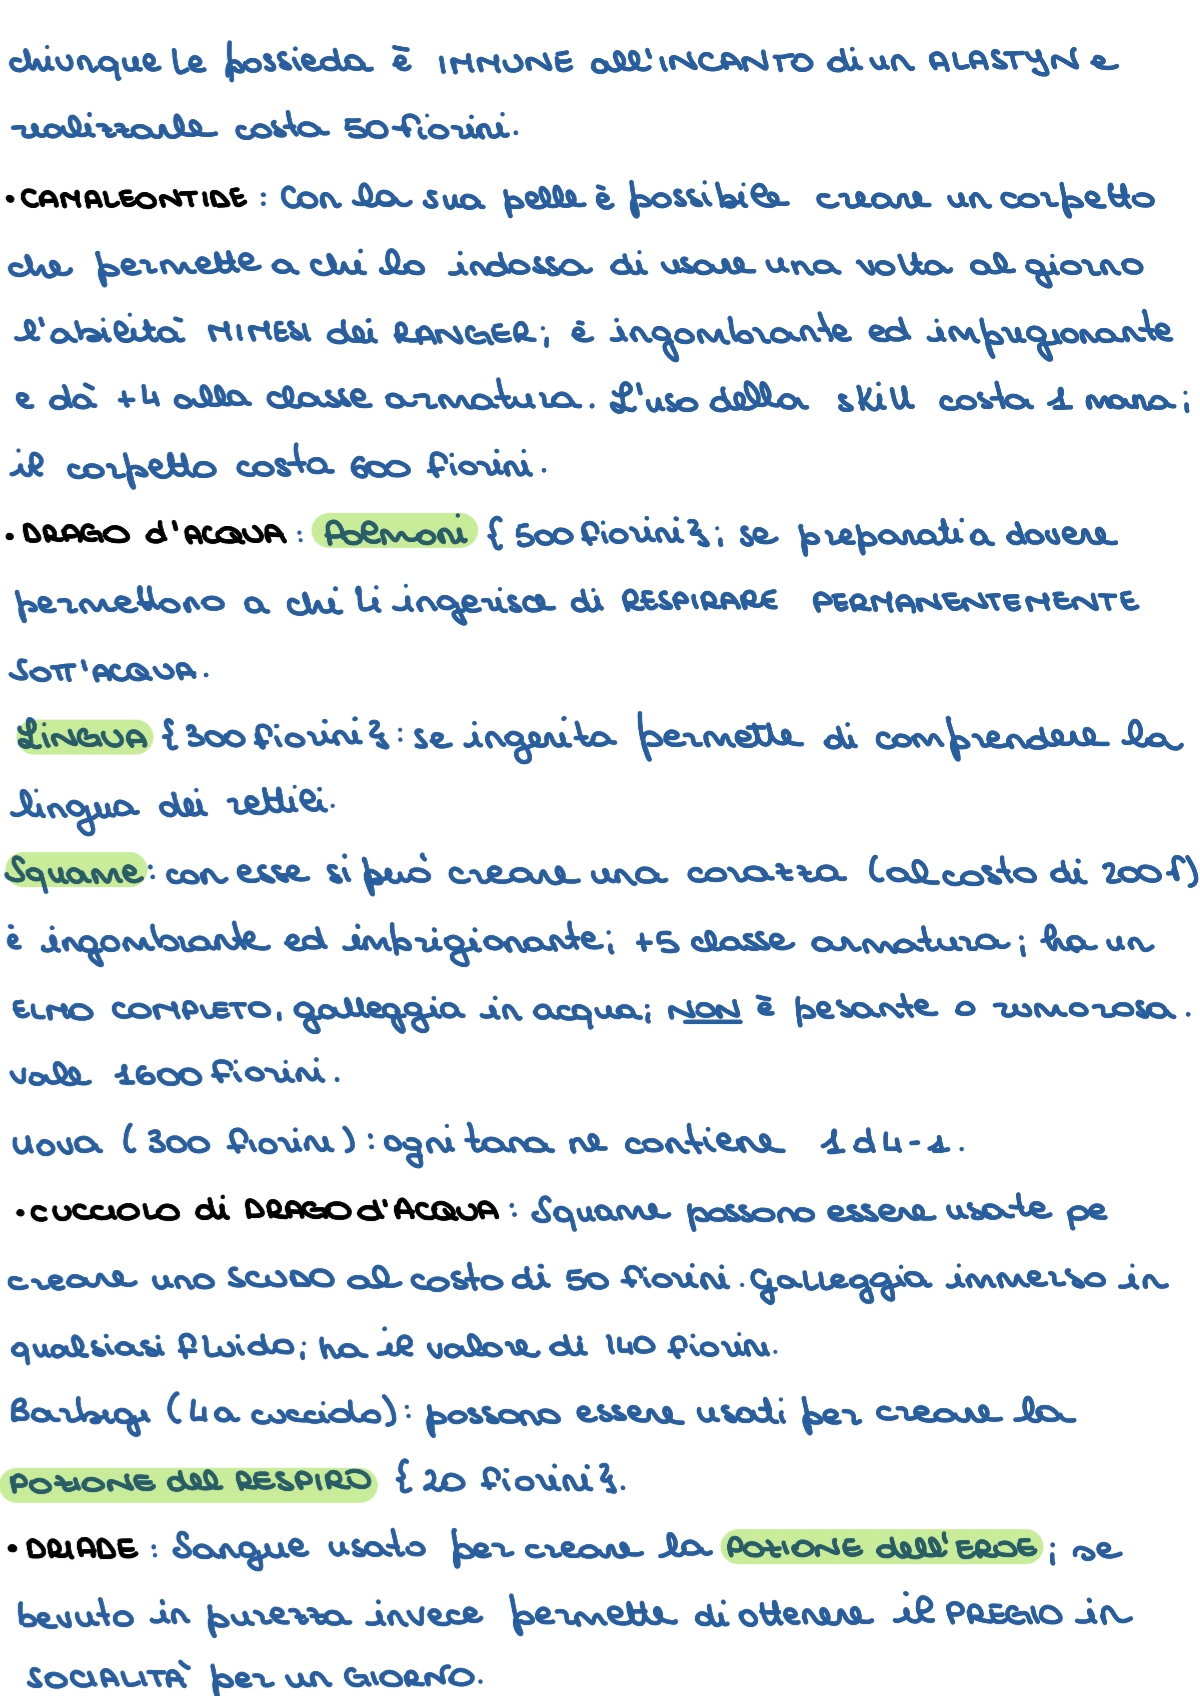 chiunque le possieda è IMMUNE all'INCANTO di un ALASTYN e
realizzarle costa 50 fiorini.
• CAMALEONTIDE : Con la sua pelle è possibile creare un corpetto
che permette a chi lo indossa di usare una volta al giorno
l'abilità MIMESI dei RANGER; è ingombrante ed impugionante
e dà +4 alla classe armatura. L'uso della skill costa 1 mana;
il corpetto costa 600 fiorini.
• DRAGO d'ACQUA : Polmoni { 500 fiorini}; se preparati a dovere
permettono a chi li ingerisce di RESPIRARE PERMANENTEMENTE
SOTT'ACQUA.
LINGUA { 300 fiorini } : se ingerita permette di comprendere la
lingua dei rettili.
Squame : con esse si può creare una corazza (al costo di 200 f)
è ingombrante ed imprigionante; +5 classe armatura; ha un
ELMO COMPLETO, galleggia in acqua; NON è pesante o rumorosa.
vale 1600 fiorini.
uova ( 300 fiorini ) : ogni tana ne contiene 1d4-1.
• CUCCIOLO di DRAGO d'ACQUA : Squame possono essere usate pe
creare uno SCUDO al costo di 50 fiorini. Galleggia immerso in
qualsiasi fluido; ha il valore di 140 fiorini.
Barbigi (4 a cucciolo) : possono essere usati per creare la
POZIONE del RESPIRO { 20 fiorini}.
• DRIADE : Sangue usato per creare la POZIONE dell'EROE ; se
bevuto in purezza invece permette di ottenere il PREGIO in
SOCIALITÀ per un GIORNO.